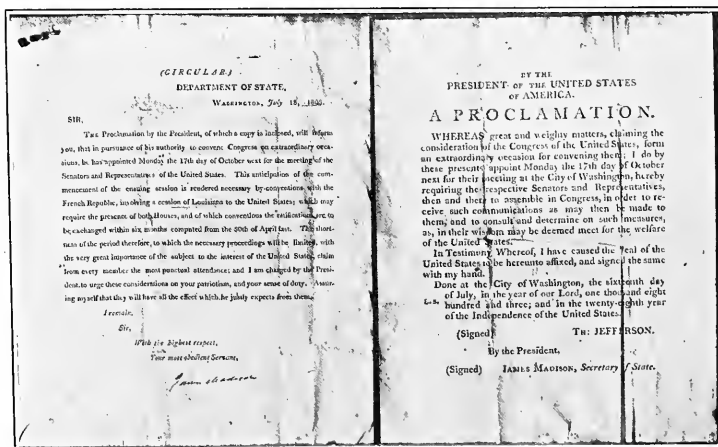 (CIRCULAR.)
DEPARTMENT OF STATE,
WASHINGTON, July 18, 1803.
SIR,
THE Proclamation by the President, of which a copy is inclosed, will inform
you, that in pursuance of his authority to convene Congress on extraordinary occa-
sions, he has appointed Monday the 17th day of October next for the meeting of the
Senators and Representatives of the United States. This anticipation of the com-
mencement of the ensuing session is rendered necessary by conventions with the
French Republic, involving a cession of Louisiana to the United States; which may
require the presents of both Houses, and of which conventions the ratifications are to
be exchanged within six months computed from the 30th of April last. The short-
ness of the period therefore, to which the necessary proceedings will be limited, with
the very great importance of the subject to the interest of the United States, claim
from every member the most punctual attendance; and I am charged by the Presi-
dent, to urge these considerations on your patriotism, and your sense of duty. Assur-
ing myself that they will have all the effect which he justly expects from them,
I remain,
Sir,
With the highest respect,
Your most obedient Servant,
James Madison
BY THE
PRESIDENT OF THE UNITED STATES
OF AMERICA.
A PROCLAMATION.
WHEREAS great and weighty matters, claiming the
consideration of the Congress of the United States, form
an extraordinary occasion for convening them; I do by
these presents appoint Monday the 17th day of October
next for their meeting at the City of Washington, hereby
requiring the respective Senators and Representatives,
then and there to assemble in Congress, in order to re-
ceive such communications as may then be made to
them, and to consult and determine on such measures,
as, in their wisdom may be deemed meet for the welfare
of the United States.
In Testimony Whereof, I have caused the seal of the
United States to be hereunto affixed, and signed the same
with my hand.
Done at the City of Washington, the sixteenth day
of July, in the year of our Lord, one thousand eight
L.S. hundred and three; and in the twenty-eighth year
of the Independence of the United States.
(Signed) TH: JEFFERSON.
By the President,
(Signed) JAMES MADISON, Secretary of State.